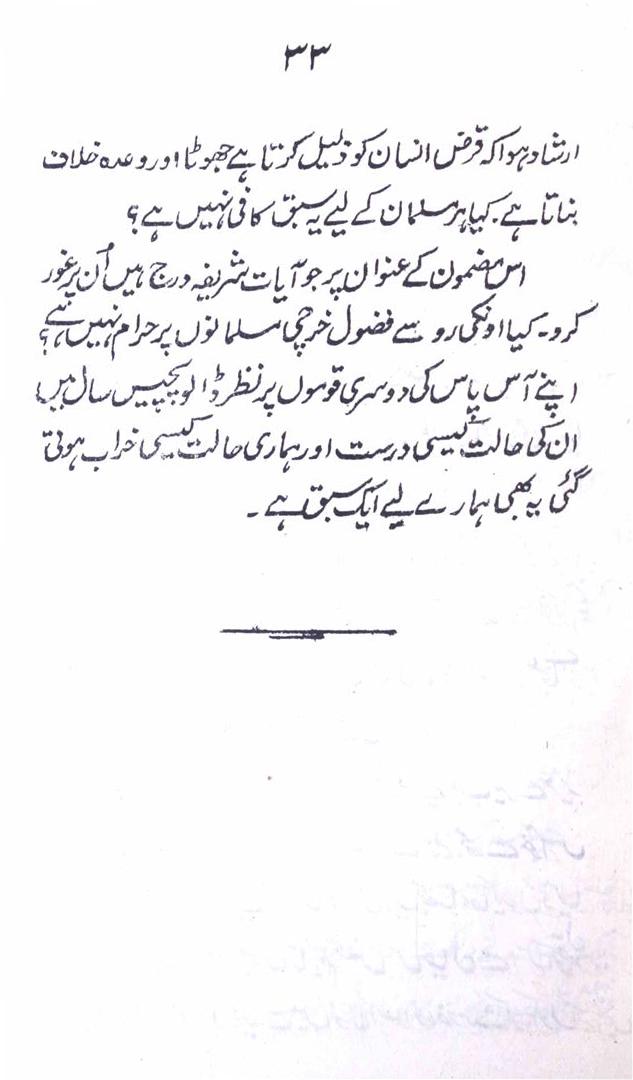 ۳۳
ارشاد ہوا کہ قرض انسان کو ذلیل کرتا ہے جھوٹا اور وعدہ خلاف
بناتا ہے۔ کیا ہر مسلمان کے لیے یہ سبق کافی نہیں ہے؟
اس مضمون کے عنوان پر جو آیات شریفہ درج ہیں اُن پر غور
کرو۔ کیا اونکی رو سے فضول خرچی مسلمانوں پر حرام نہیں ہے؟
اپنے آس پاس کی دوسری قوموں پر نظر ڈالو پچیس سال میں
ان کی حالت کیسی درست اور ہماری حالت کیسی خراب ہوتی
گئی یہ بھی ہمارے لیے ایک سبق ہے۔